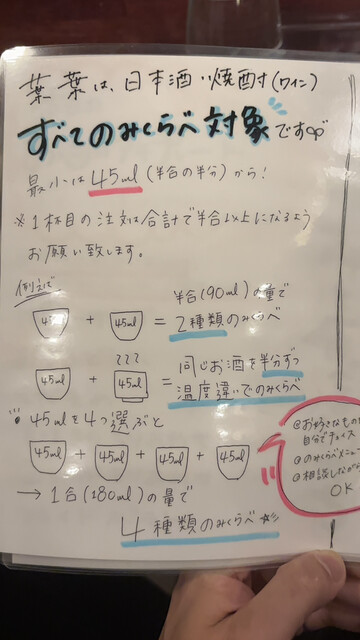 葉葉は、日本酒・焼酎(ワイン)
すべてのみくらべ対象です
最小は45ml(半合の半分)から!
※1杯目の注文は合計で半合以上になるよう
お願い致します。
例えば
45ml + 45ml = 半合(90ml)の量で
2種類のみくらべ
45ml + 45ml = 同じお酒を半分ずつ
温度違いでのみくらべ
45mlを4つ選ぶと
45ml + 45ml + 45ml + 45ml
→1合(180ml)の量で
4種類のみくらべ
@お好きなもの
自分でチョイス
@のみくらべメニュー
@相談しながら
OK